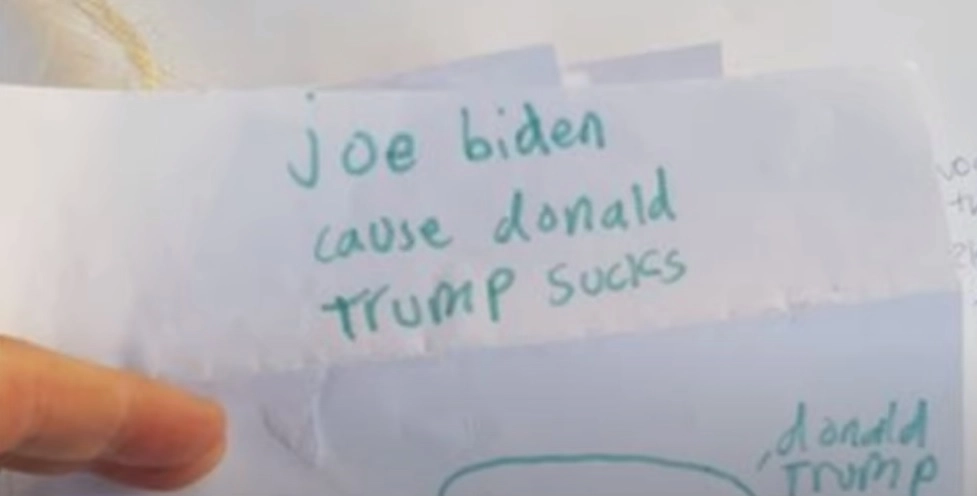 joe biden
cause donald
trump sucks
donald
trump